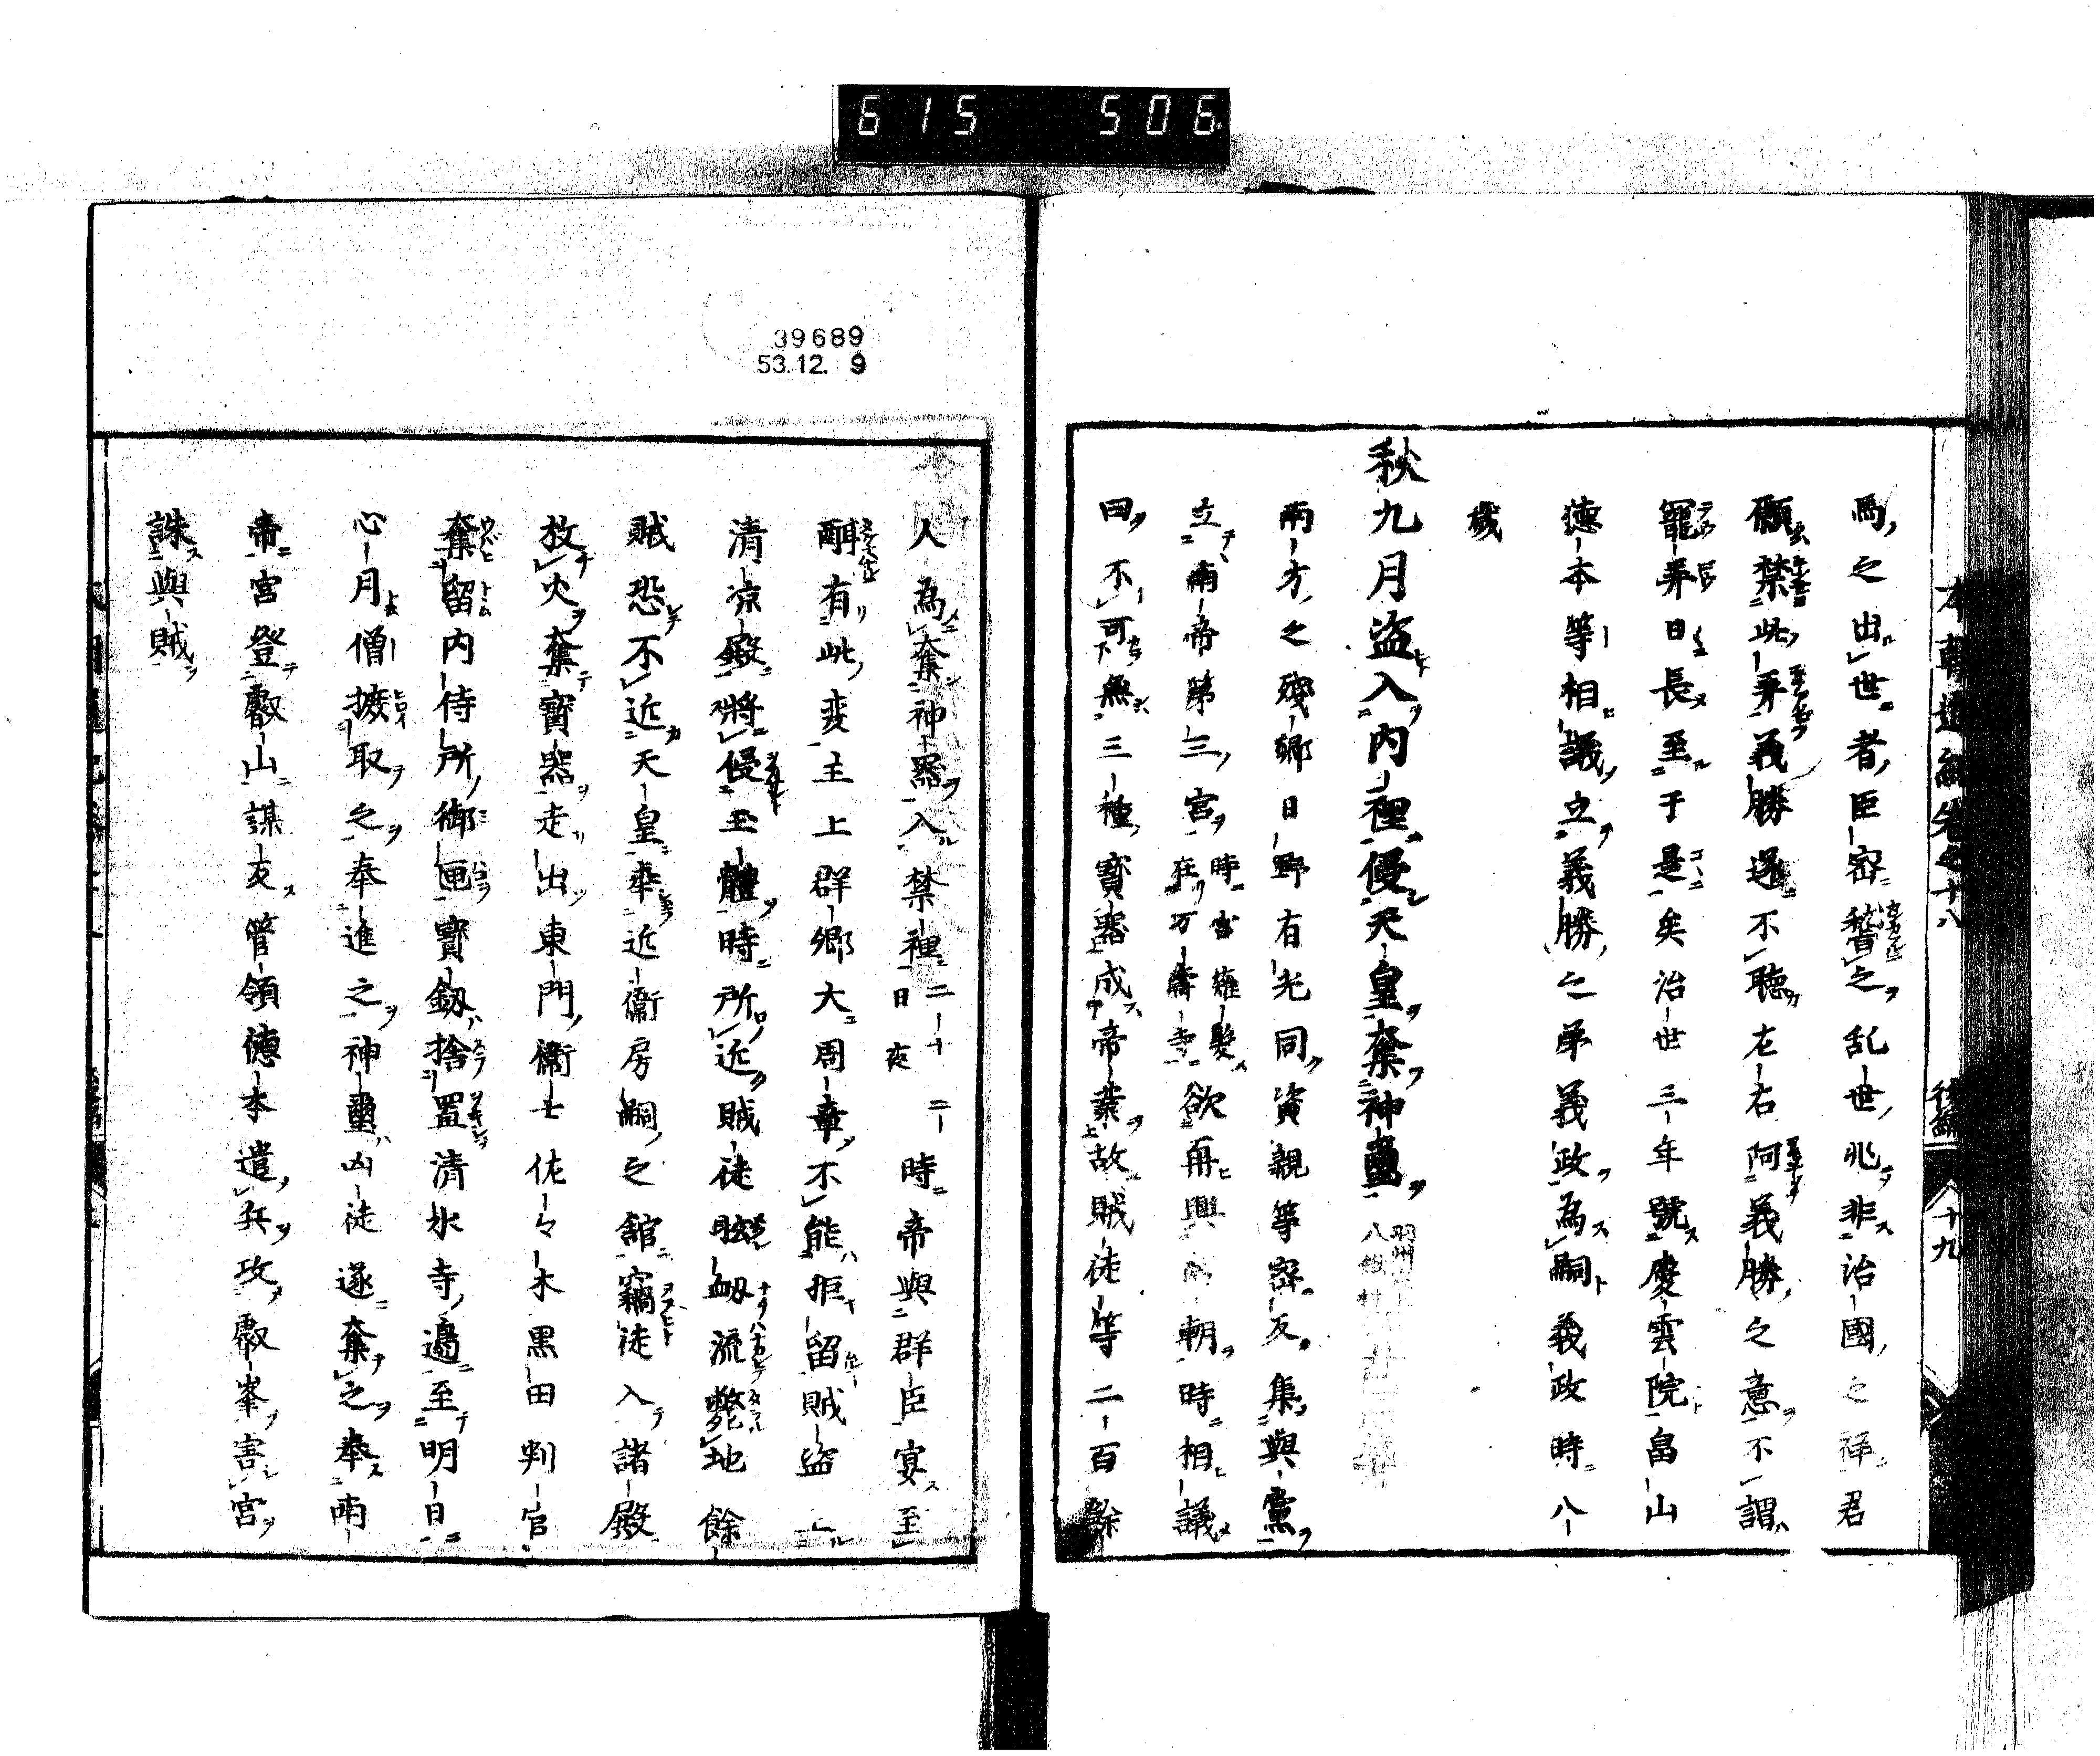 615 506
馬之出世者臣密稽之乱世兆非治國之祥君
願禁此弄義勝還不聴左右阿義勝之意不謂
寵弄日長至于是矣治世三年號慶雲院畠山
德本等相議立義勝之弟義政為嗣義政時八
歲
秋九月盗入内裡侵天皇奪神璽
南方之殘郷日野有光同資親等密反集與黨
立南帝第三宮時雪薙髮在万壽寺欲再興朝時相議
曰不可無三種寳器成帝業故賊徒等二百餘
本朝通紀卷之十八 後編 十九
39689
53.12. 9
人為奪神器入禁裡二十二日夜時帝與群臣宴至
酣有此変主上群郷大周章不能拒留賊盗上
清凉殿將侵玉體時所近賊徒眩衂流斃地餘
賊恐不近天皇幸近衞房嗣之舘竊徒入諸殿
放火奪寳器走出東門衞士佐々木黒田判官
奪留内侍所御匣寳釼捨置清水寺邉至明日
心月僧擄取之奉進之神璽凶徒遂奪之奉南
帝宮登叡山謀反管領德本遣兵攻叡峯害宮
誅與賊